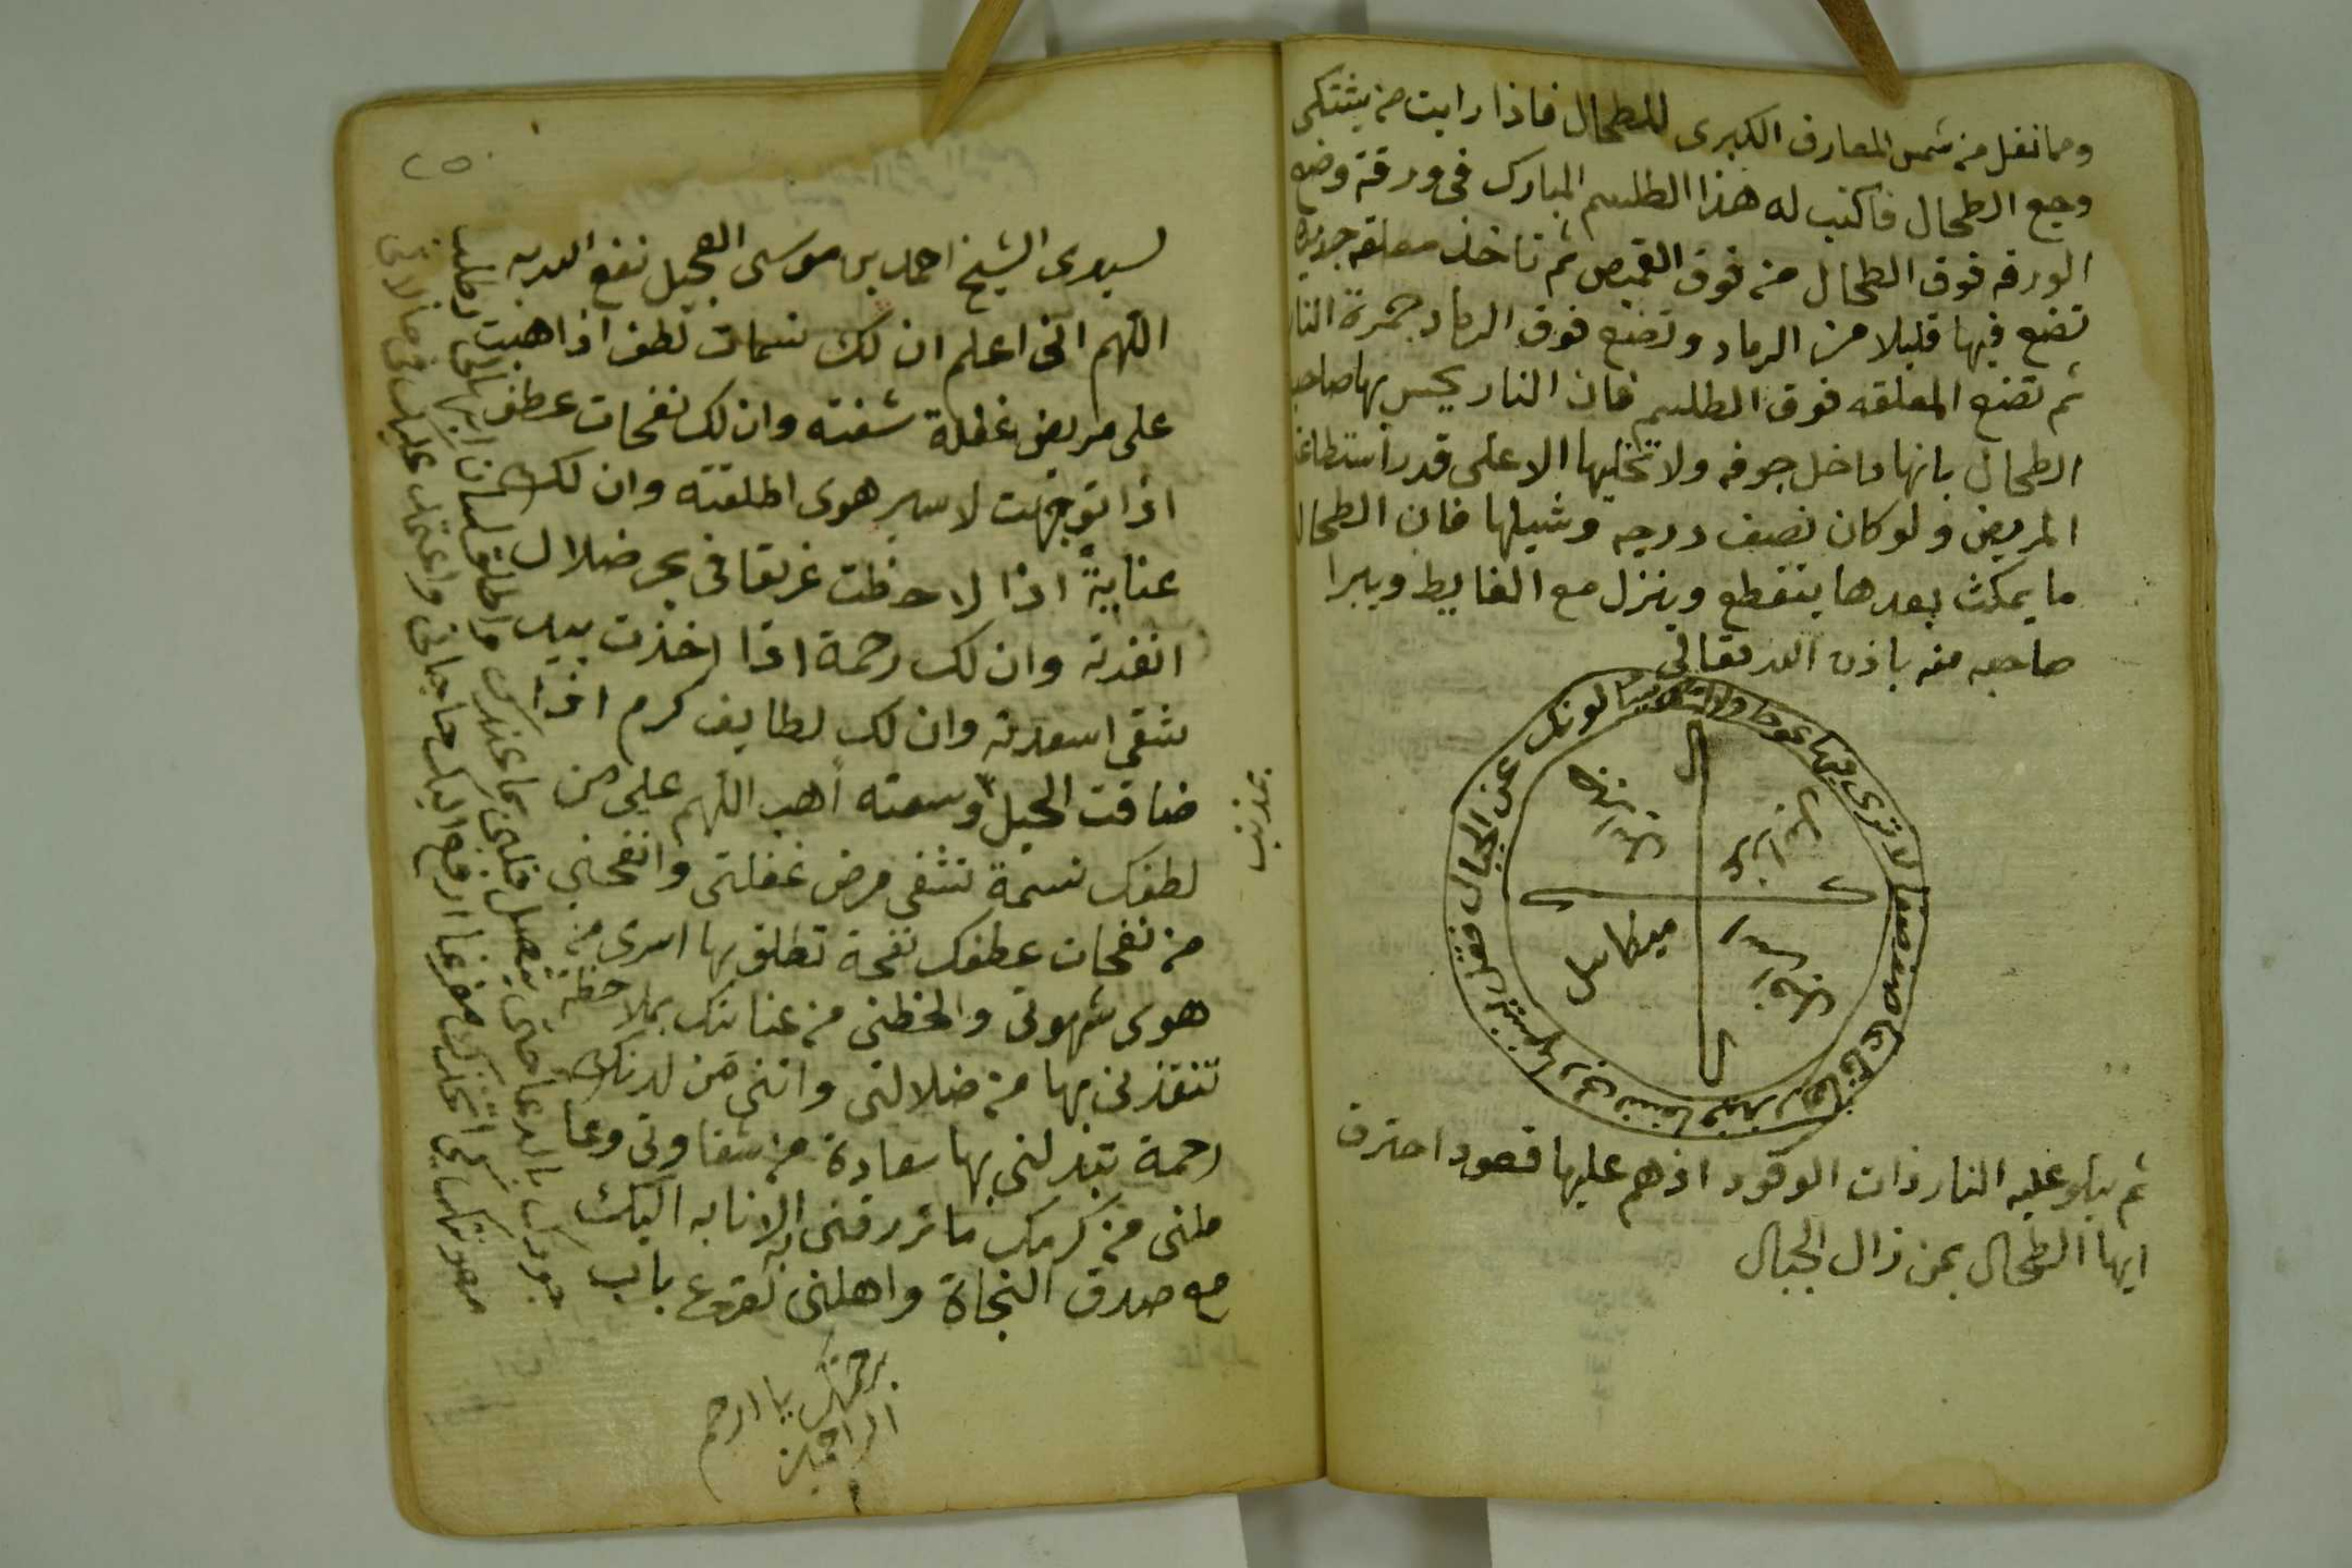 ومما نقل من شمس المعارف الكبرى للطحال فاذا رايت من يشتكي
وجع الطحال فاكتب له هذا الطلسم المبارك في ورقة وضع
الورقه فوق الطحال من فوق القميص ثم تاخذ معلقه جديده
تضع فيها قليلا من الرماد وتضع فوق الرماد جمرة النار
ثم تضع المعلقه فوق الطلسم فان النار يحس بها صاحب
الطحال بانها داخل جوفه ولا تخليها الا على قدر استطاعة
المريض ولو كان نصف درجه وشيلها فان الطحال
ما يمكث بعدها يتقطع وينزل مع الغايط ويبرا
صاحبه منه باذن الله تعالى
ويسالونك عن الجبال فقل ينسفها ربي نسفا فيذرها قاعا صفصفا لا ترى فيها عوجا ولا امتا
جبرائيل
ميكائيل
اسرافيل
عزرائيل
ثم يتلو عليه النار ذات الوقود اذ هم عليها قعود احترق
ايها الطحال بمن زال الجبال
٢٥
لسيدي الشيخ احمد بن موسى العجيل نفع الله به
اللهم اني اعلم ان لك نسمات لطف اذا هبت
على مريض غفلة شفته وان لك نفحات عطف
اذا توجهت لاسير هوى اطلقته وان لك
عناية اذا لاحظت غريقا في بحر ضلال
انقذته وان لك رحمة اذا اخذت بيد
شقي اسعدته وان لك لطايف كرم اذا
ضاقت الحيل وسعته اهب اللهم علي من
بمذنب
لطفك نسمة تشفي مرض غفلتي وانفحني
من نفحات عطفك نفحة تطلق بها اسري من
هوى شهوتي والحظني من عنايتك بملاحظة
تنقذني بها من ضلالتي واتني من لدنك
رحمة تبدلني بها سعادة من شقاوتي وعا
ملني من كرمك ما ترزقني به الانابه اليك
مع صدق النجاة واهلني لقرع باب
جودك بالدعا حتى يتصل قلبي بما عندك واطلق لسان
ارفع اليك حاجاتي واعتمد عليك في حالاتي
برحمتك يا ارحم
الراحمين